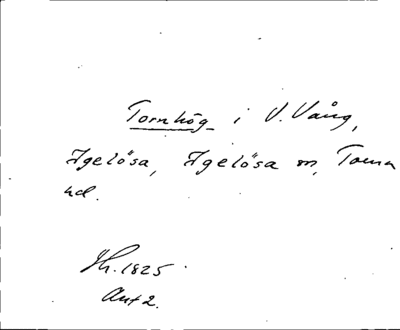 Tornhög i V. Vång,
Igelösa, Igelösa sn, Torna
hd.
Sk. 1825
Ant 2.